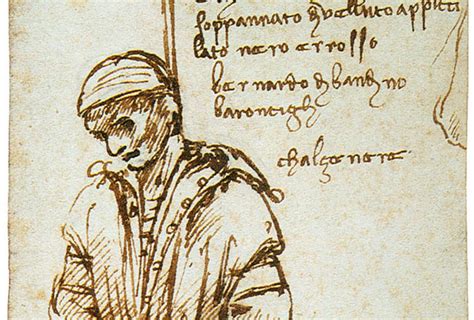 soppannato di velluto appicci
lato nero e rosso
bernardo di bandino
baroncigli
chalze nere